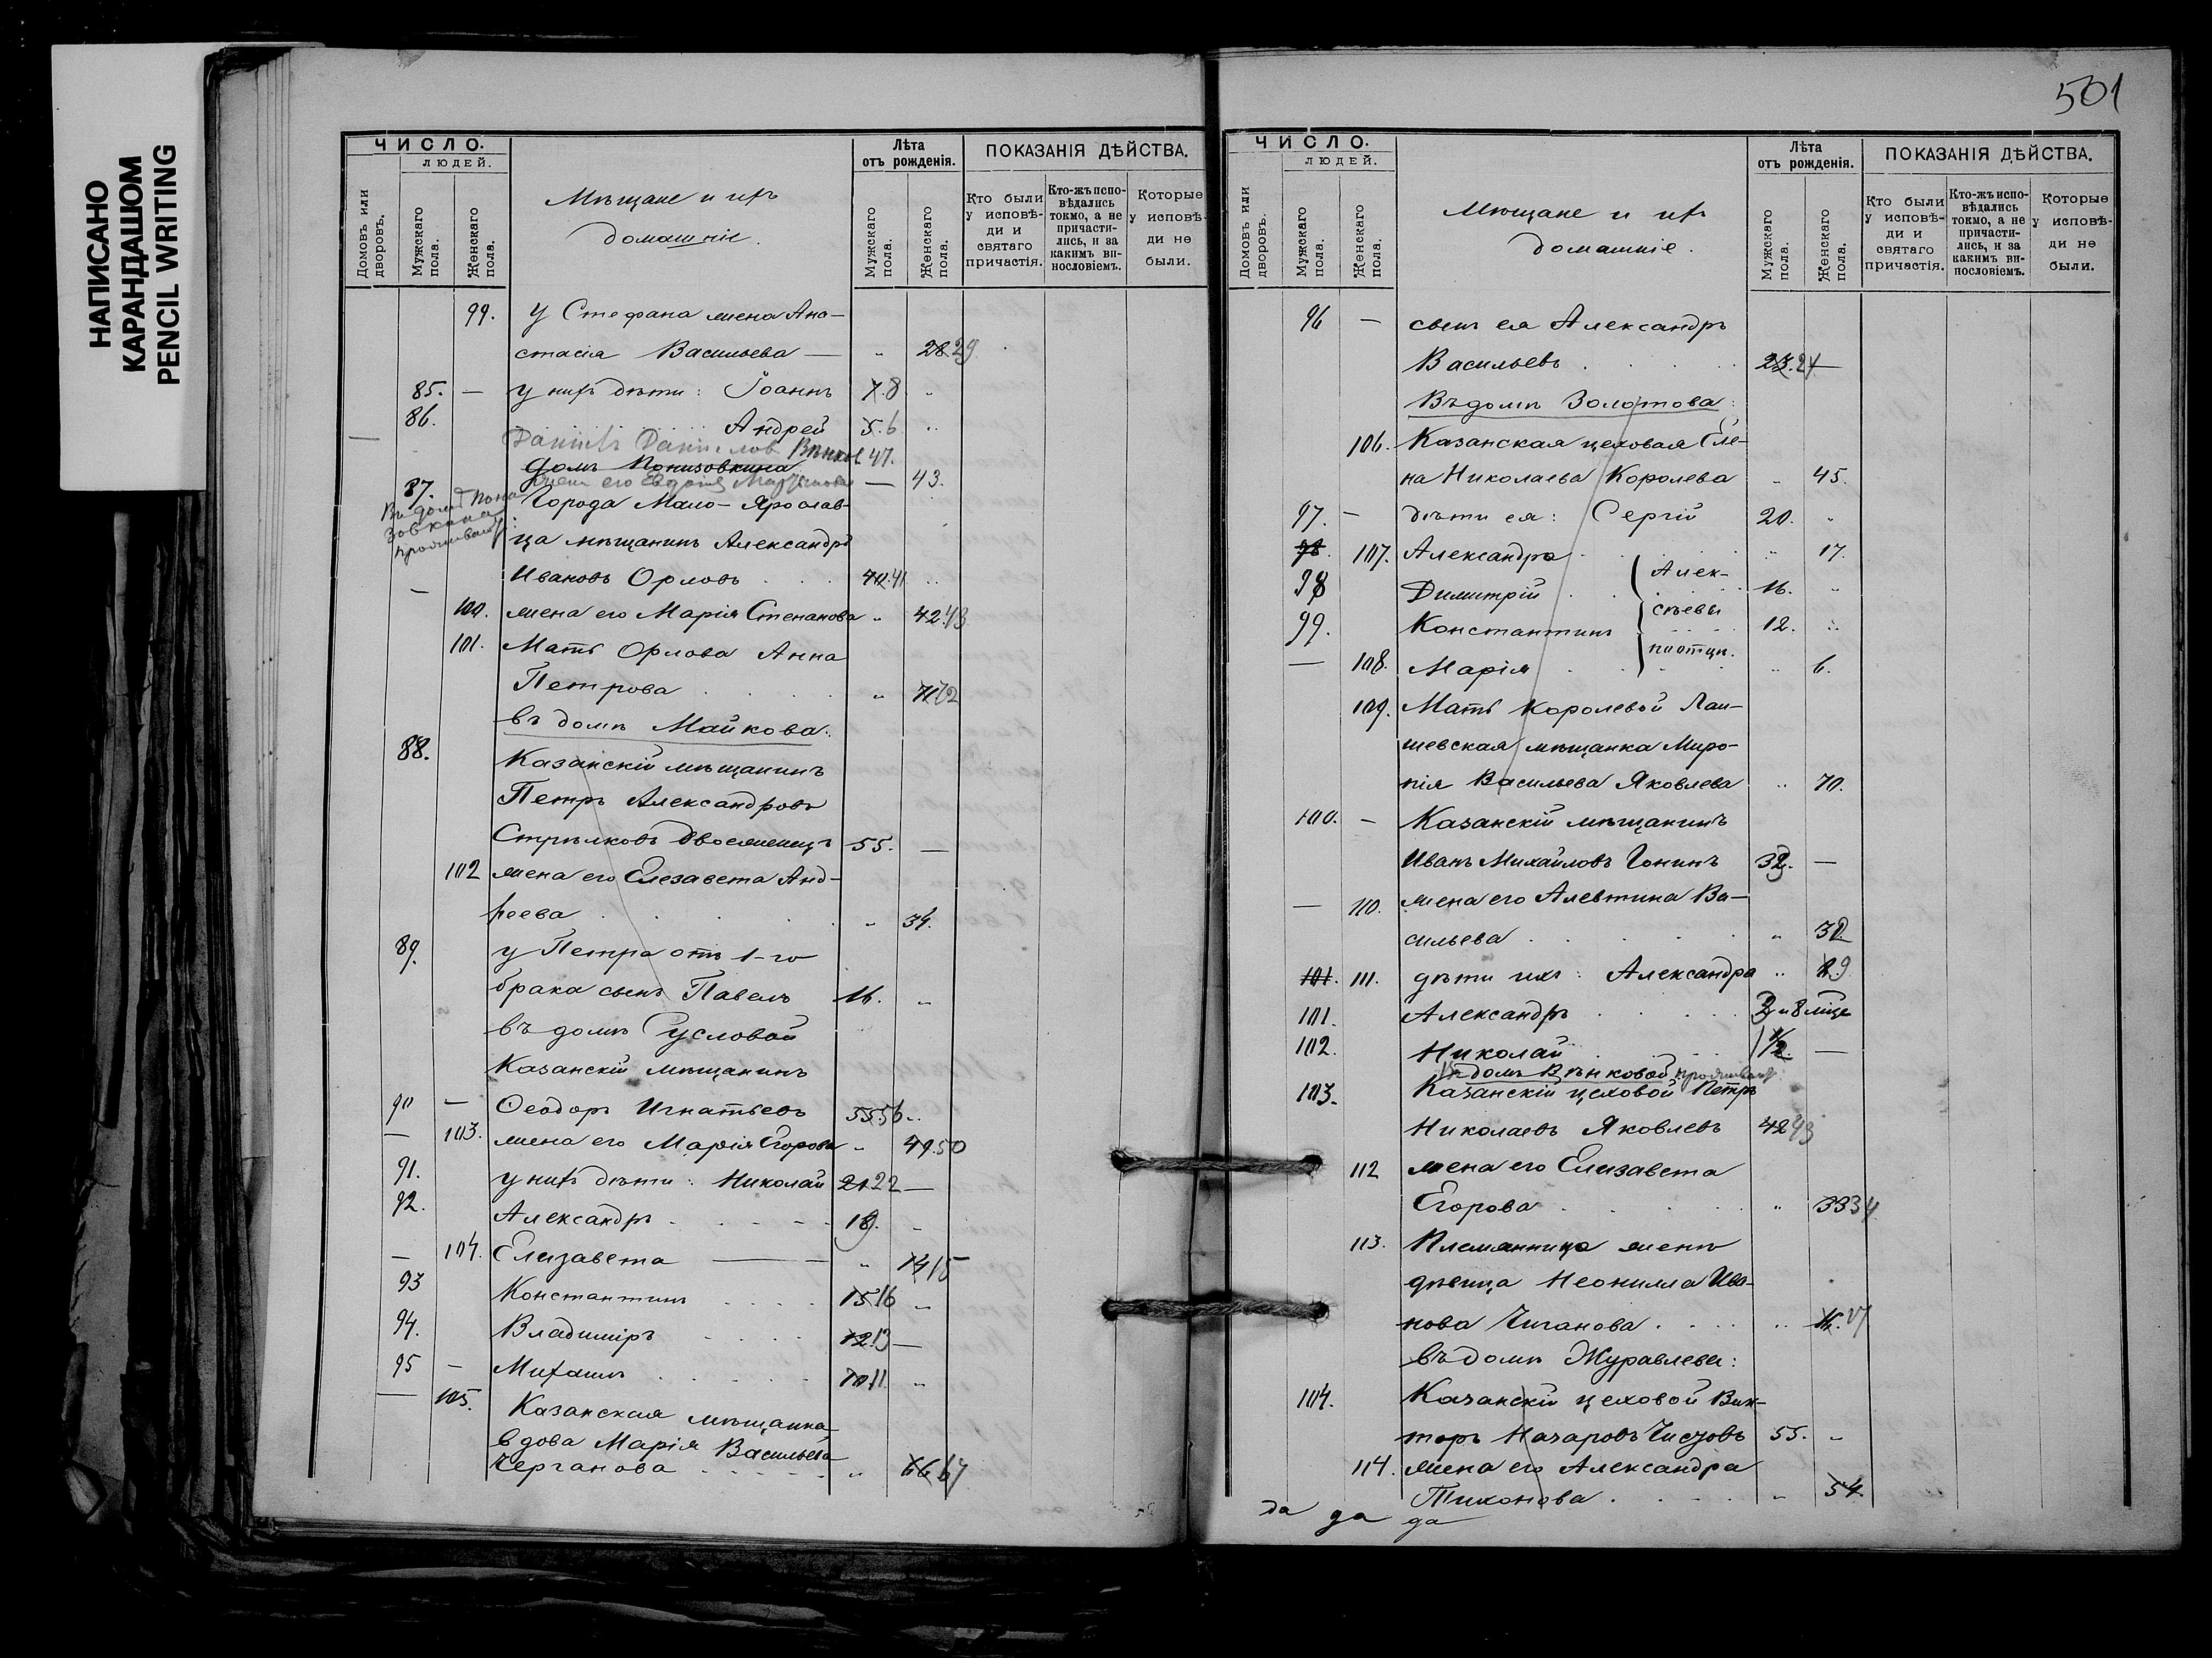 НАПИСАНО
КАРАНДАШОМ
PENCIL WRITING
ЧИСЛО.
ЛЮДЕЙ.
Домовъ или дворовъ.
Мужскаго пола.
Женскаго пола.
Мѣщане и ихъ
домашніе.
Лѣта
отъ рожденія.
Мужскаго пола.
Женскаго пола.
ПОКАЗАНІЯ ДѢЙСТВА.
Кто были у исповѣди и святаго причастія.
Кто-жъ исповѣдались токмо, а не причастились, и за какимъ винословіемъ.
Которые у исповѣди не были.
99. у Стефана жена Ана-
стасія Васильева — " 28 29
85. — у нихъ дѣти: Іоаннъ 7. 8 "
86. Андрей 5. 6 "
Даніилъ Даніиловъ 47.
домъ Понизовкина
жена его — 43.
87. Города Мало-Ярослав-
Въ домѣ Пони
зовкина
проживаютъ
ца мѣщанинъ Александръ
Ивановъ Орловъ 40. 41 "
— 100. жена его Марія Степанова " 42. 43
101. Мать Орлова Анна
Петрова " 71 72
въ домѣ Майкова.
88. Казанскій мѣщанинъ
Петръ Александровъ
Стрѣлковъ двоеженецъ 55. —
102 жена его Елезавета Анд-
реева " 34.
89. у Петра отъ 1-го
брака сынъ Павелъ 16. "
въ домѣ Сусловой
Казанскій мѣщанинъ
90 — Ѳеодоръ Игнатьевъ 55 56 "
— 103. жена его Марія Егорова " 49. 50
91. у нихъ дѣти: Николай 21 22 —
92. Александръ 19. "
— 104. Елизавета — " 14 15
93 Константинъ 15 16 "
94. Владиміръ 12 13 —
95 — Михаилъ 10 11 "
— 105. Казанская мѣщанка
вдова Марія Васильева
Черганова " 66 67
501
ЧИСЛО.
ЛЮДЕЙ.
Домовъ или дворовъ.
Мужскаго пола.
Женскаго пола.
Мѣщане и ихъ
домашніе.
Лѣта
отъ рожденія.
Мужскаго пола.
Женскаго пола.
ПОКАЗАНІЯ ДѢЙСТВА.
Кто были у исповѣди и святаго причастія.
Кто-жъ исповѣдались токмо, а не причастились, и за какимъ винословіемъ.
Которые у исповѣди не были.
96 — сынъ ея Александръ
Васильевъ 23. 24 —
Въ домѣ Золотова:
106. Казанская цеховая Еле-
на Николаева Королева " 45.
97. — дѣти ея: Сергій 20. "
98 107. Александра " 17.
Алек-
98 Димитрій 16. "
сѣевы
99. Константинъ 12. "
по отцу.
— 108. Марія " 6.
109. Мать Королевой Лаи-
шевская мѣщанка Миро-
пія Васильева Яковлева " 70.
100. — Казанскій мѣщанинъ
Иванъ Михайловъ Гонинъ 33. —
— 110. жена его Алевтина Ва-
сильева " 32
101. 111. дѣти ихъ: Александра " 8 9
101. Александръ 3 и 8 мѣце
102. Николай 1 1/2 —
Въ домѣ Вѣнковой проживаютъ:
103. Казанскій цеховой Петръ
Николаевъ Яковлевъ 42 43
112 жена его Елизавета
Егорова " 33 34
113. Племянница жены
дѣвица Неонилла Ива-
нова Чиганова " 16. 17
въ домѣ Журавлева:
104. Казанскій цеховой Вик-
торъ Назаровъ Чистовъ 55. "
114. жена его Александра
Тихонова " 54.
да да да